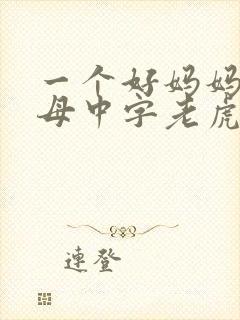 一个好妈妈
母中字老虎
連登